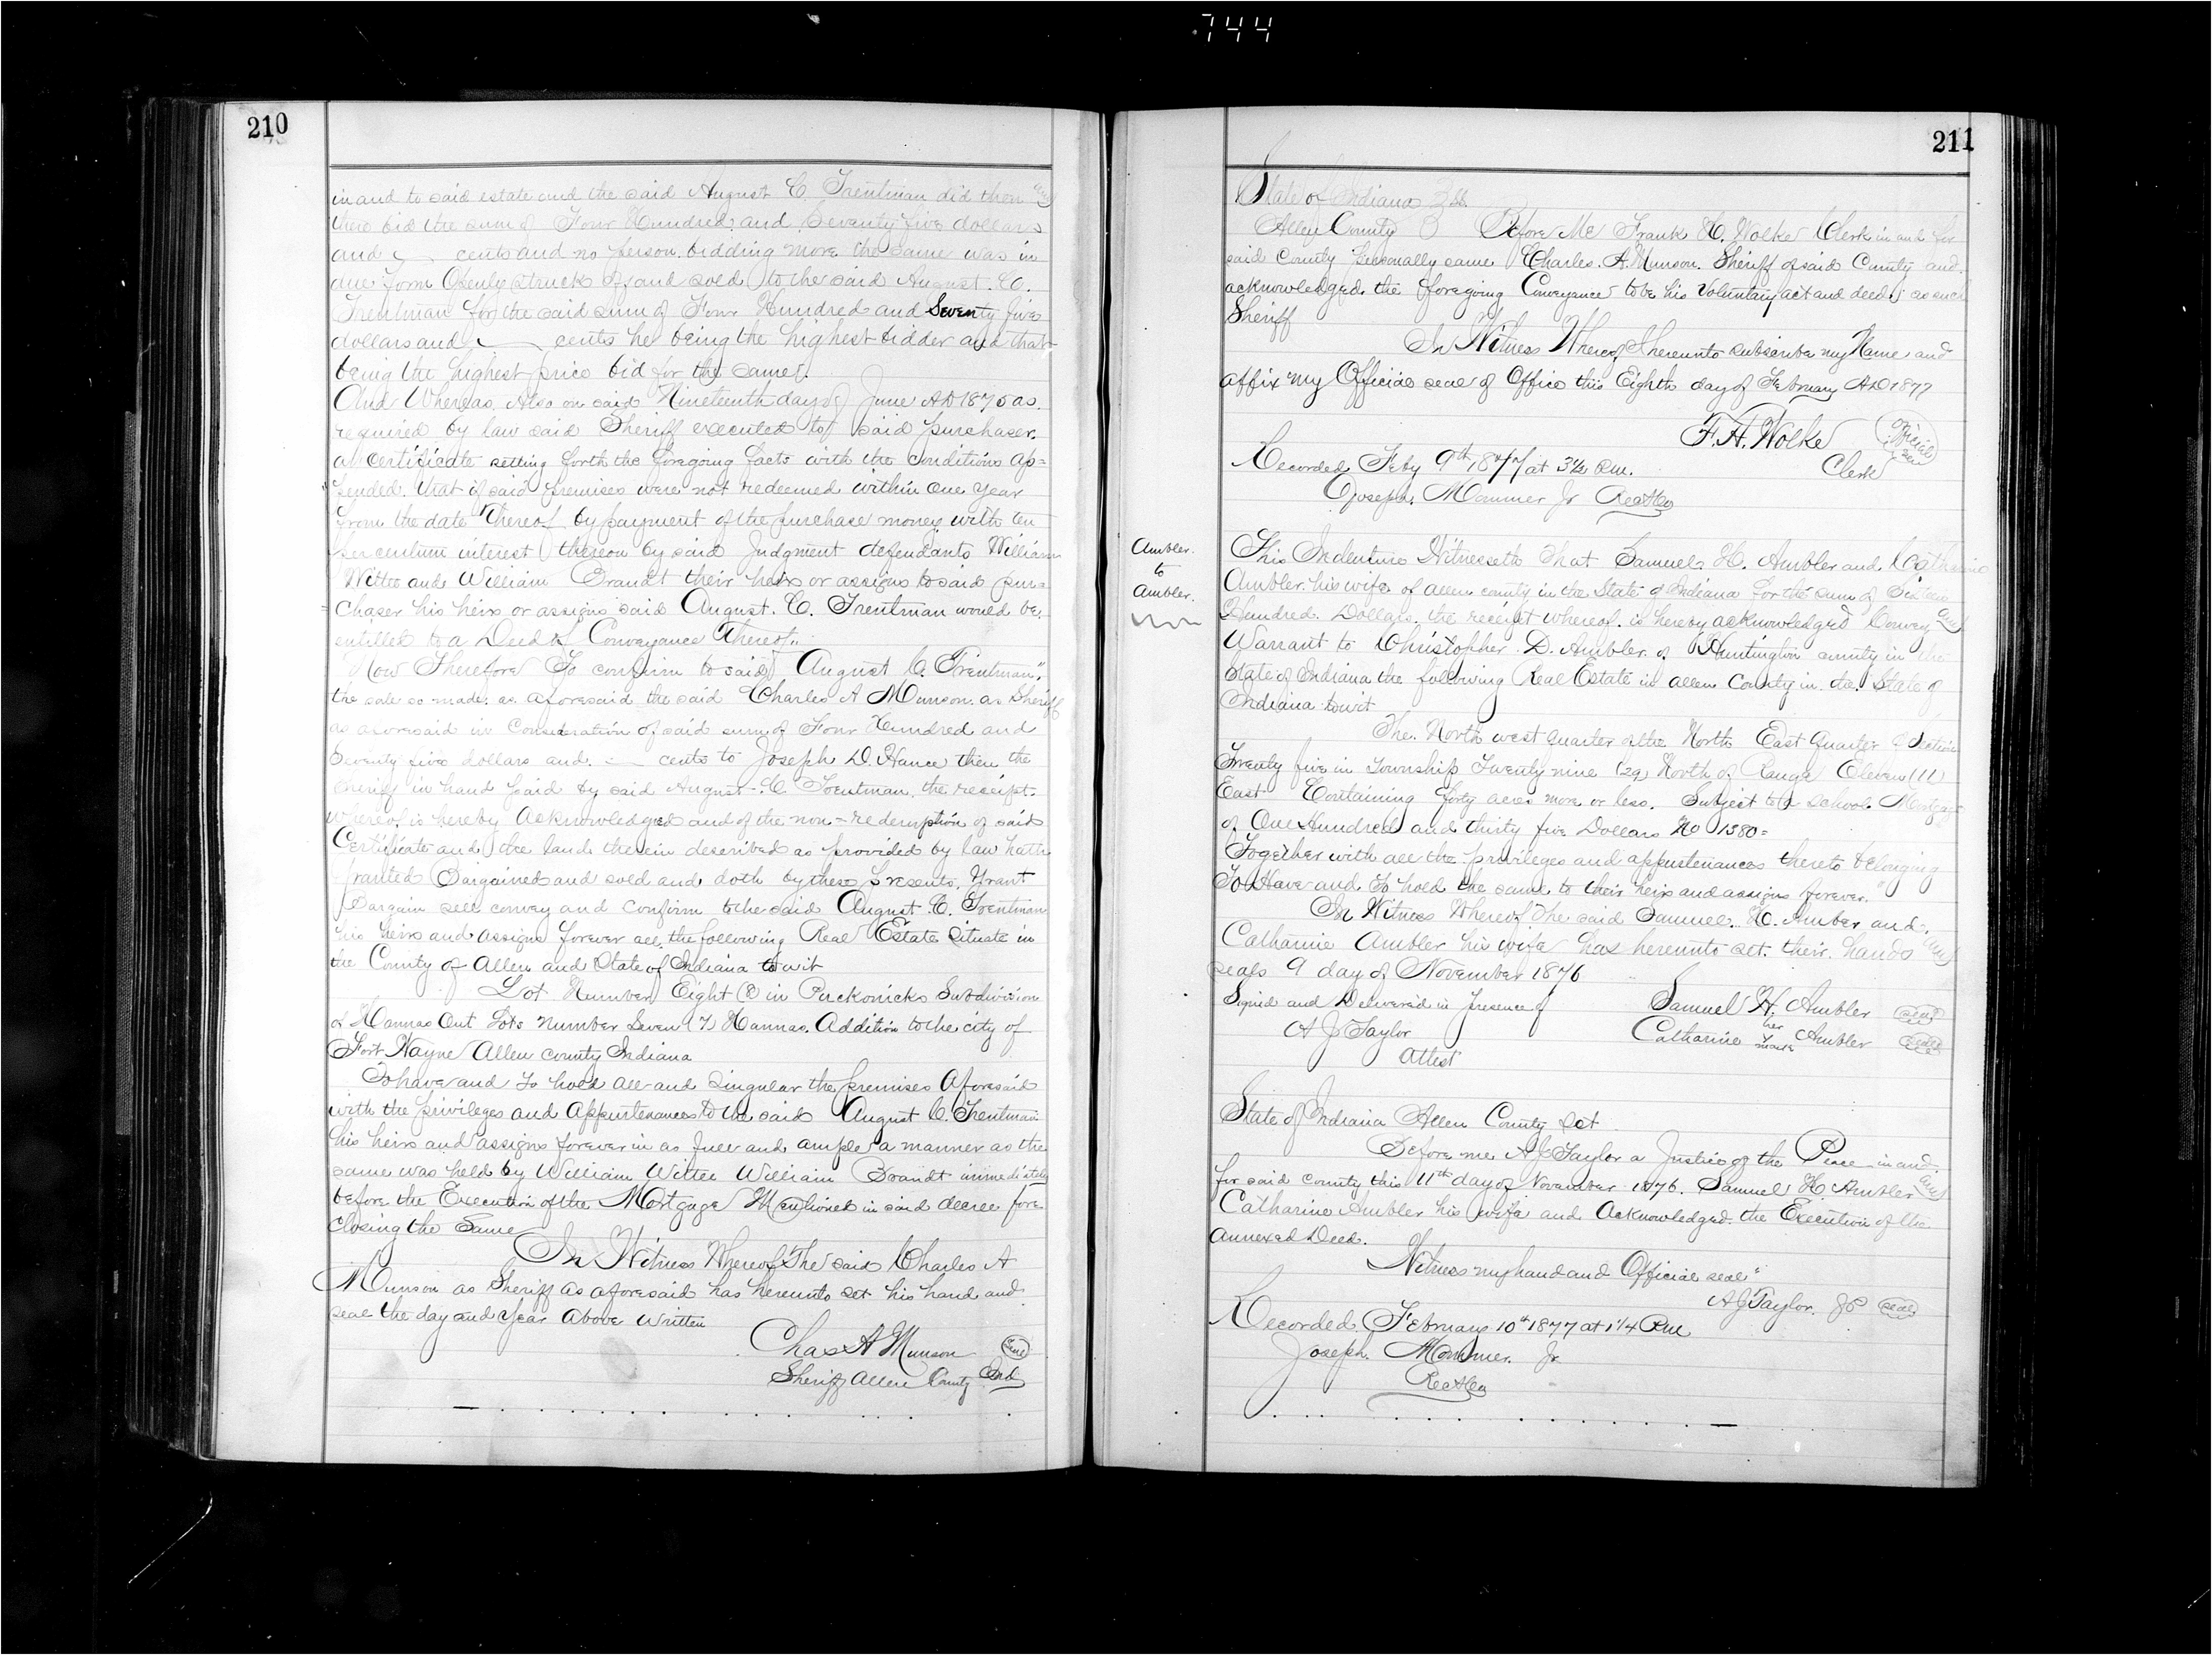 744
210
in and to said estate and the said August C. Trentman did then and
there bid the sum of Four Hundred and Seventy five dollars
and — cents and no person bidding more the same was in
due form Openly struck off and sold to the said August. C.
Trentman for the said sum of Four Hundred and Seventy five
dollars and — cents he being the highest bidder and that
being the highest price bid for the same.
And Whereas Also on said Nineteenth day of June AD 1875 as
required by law said Sheriff executed to said purchaser.
a certificate setting forth the foregoing facts with the conditions ap=
"pended. that if said premises were not redeemed within one year
from the date thereof by payment of the purchase money with ten
per centum interest thereon by said Judgment defendants William
Wittee and William Brandt their heirs or assigns to said pur=
=chaser his heirs or assigns said August. C. Trentman would be
entitled to a Deed of Conveyance Thereof.
Now Therefore To confirm to said August C. Trentman.
the sale so made as aforesaid the said Charles A Munson. as Sheriff
as aforesaid in Consideration of said sum of Four Hundred and
Seventy five dollars and. — cents to Joseph D. Hance then the
Sheriff in hand paid by said August. C Trentman. the receipt.
whereof is hereby Acknowledged and of the non=redemption of said
Certificate and the land therein described as provided by law hath
Granted Bargained and sold and doth by these presents, Grant
Bargain sell convey and Confirm to the said August. C. Trentman
his heirs and assigns forever all the following Real Estate Situate in
the County of Allen and State of Indiana to wit
Lot Number Eight (8) in Puckonicks Subdivision
of Hannas Out Lots Number Seven (7) Hannas. Addition to the city of
Fort Wayne Allen County Indiana
To have and to hold all and Singular the premises Aforesaid
with the privileges and Appurtenances to the said August C. Trentman
his heirs and assigns forever in as full and ample a manner as the
same was held by William Wittee William Brandt immediately
before the Execution of the Mortgage Mentioned in said decree fore
closing the Same
In Witness Whereof The said Charles A
Munson as Sheriff as aforesaid has hereunto set his hand and
seal the day and year above written
Chas A Munson Seal
Sheriff Allen County Ind
211
State of Indiana } ss.
Allen County } Before Me Frank H. Wolke Clerk in and for
said County Personally came Charles. A. Munson. Sheriff of said County and
acknowledged the foregoing Conveyance to be his Voluntary act and deed as such
Sheriff
In Witness Whereof I hereunto subscribe my Name and
affix my Official seal of Office this Eighth day of February AD 1877
F. H. Wolke Official Seal
Clerk
Recorded Feby 9th 1877 at 3½ P.m.
Joseph. Mommer Jr
Ambler.
to
Ambler.
This Indenture Witnesseth That Samuel H. Ambler and Catharine
Ambler. his wife of allen county in the State of Indiana for the sum of Sixteen
Hundred. Dollars. the receipt whereof. is hereby acknowledged Convey and
Warrant to Christopher D. Ambler. of Huntington county in the
State of Indiana the following Real Estate in allen County in the State of
Indiana towit
The. North west quarter of the North East quarter of Section
Twenty five in Township Twenty nine (29) North of Range Eleven (11)
East Containing forty acres more or less. Subject to a School. Mortgage
of One Hundred and thirty five Dollars No 1380=
Together with all the privileges and appurtenances thereto belonging
To Have and To hold the same to their heirs and assigns forever."
In Witness Whereof The said Samuel. H. Amber and.
Catharine Ambler his wife has hereunto set. their. hands and
seals 9 day of November 1876
Signed and Delivered in Presence of Samuel H. Ambler Seal
A J Taylor Catharine her x mark Ambler Seal
Attest
State of Indiana Allen County Sct
Before me A J Taylor a Justice of the Peace in and.
for said County this 11th day of November 1876. Samuel H. Ambler and
Catharine Ambler his wife and Acknowledged. the Execution of the
annexed Deed.
Witness my hand and Official seal"
A J Taylor. JP Seal
Recorded February 10th 1877 at 1¼ P.m
Joseph. Mommer. Jr